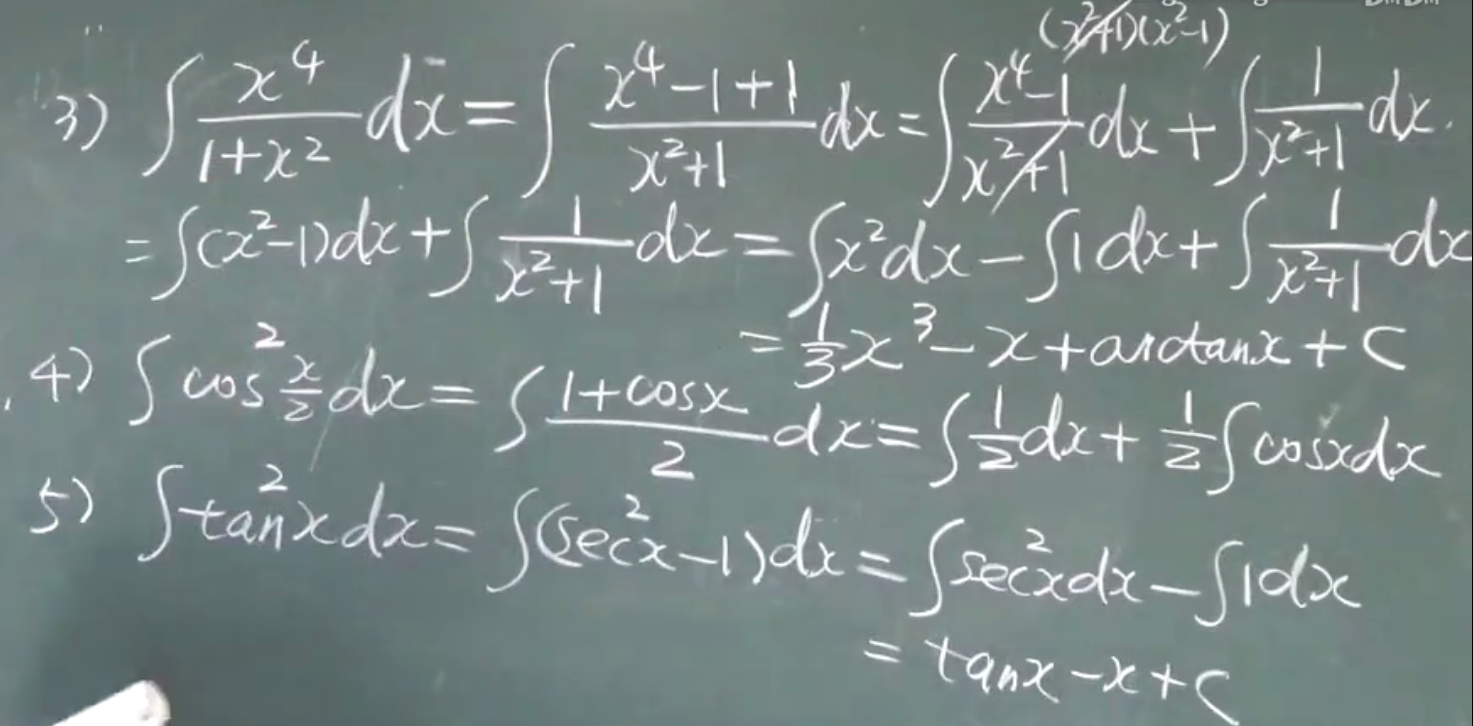 (x²+1)(x²-1)
3) ∫ x⁴/(1+x²) dx = ∫ (x⁴-1+1)/(x²+1) dx = ∫ (x⁴-1)/(x²+1) dx + ∫ 1/(x²+1) dx.
= ∫(x²-1)dx + ∫ 1/(x²+1) dx = ∫x²dx - ∫1dx + ∫ 1/(x²+1) dx
= 1/3 x³ - x + arctanx + C
4) ∫ cos² x/2 dx = ∫ (1+cosx)/2 dx = ∫ 1/2 dx + 1/2 ∫ cosxdx
5) ∫tan²xdx = ∫(sec²x-1)dx = ∫sec²xdx - ∫1dx
= tanx - x + C